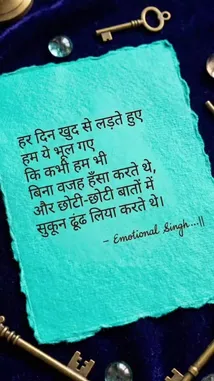 हर दिन खुद से लड़ते हुए
हम ये भूल गए
कि कभी हम भी
बिना वजह हँसा करते थे,
और छोटी-छोटी बातों में
सुकून ढूंढ लिया करते थे।
– Emotional Singh...||